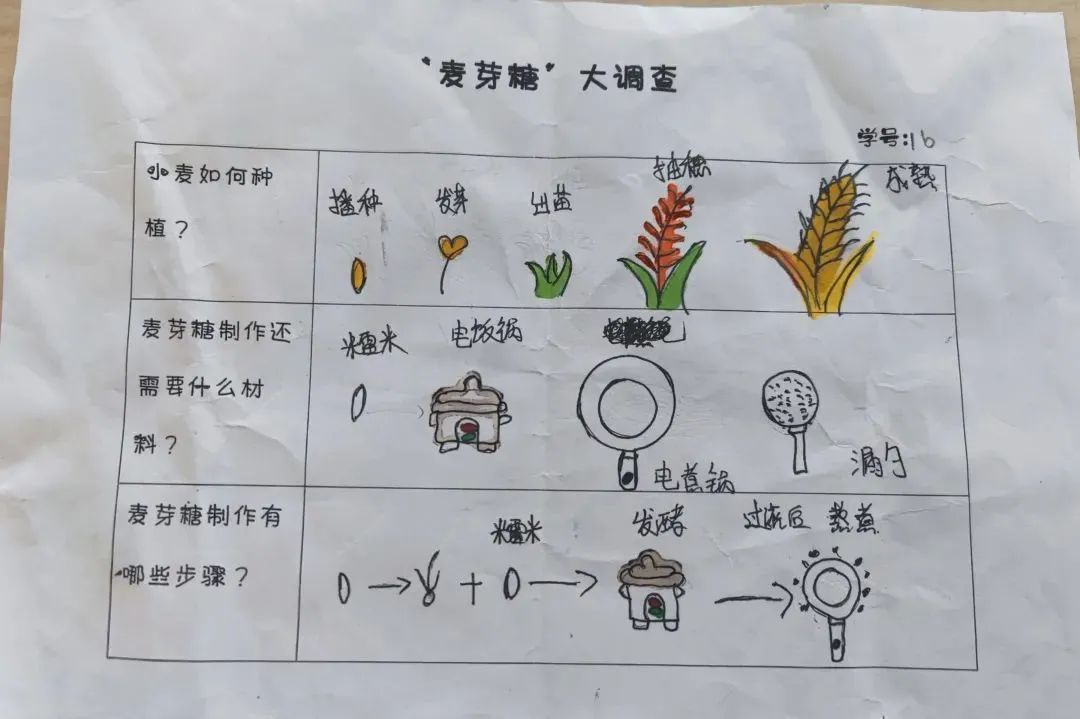 “麦芽糖”大调查
学号:16
小麦如何种
植？
播种 发芽 出苗 抽穗 成熟
麦芽糖制作还
需要什么材
料？
糯米 电饭锅
电煮锅 漏勺
麦芽糖制作有
哪些步骤？
糯米 发酵 过滤后 熬煮
+